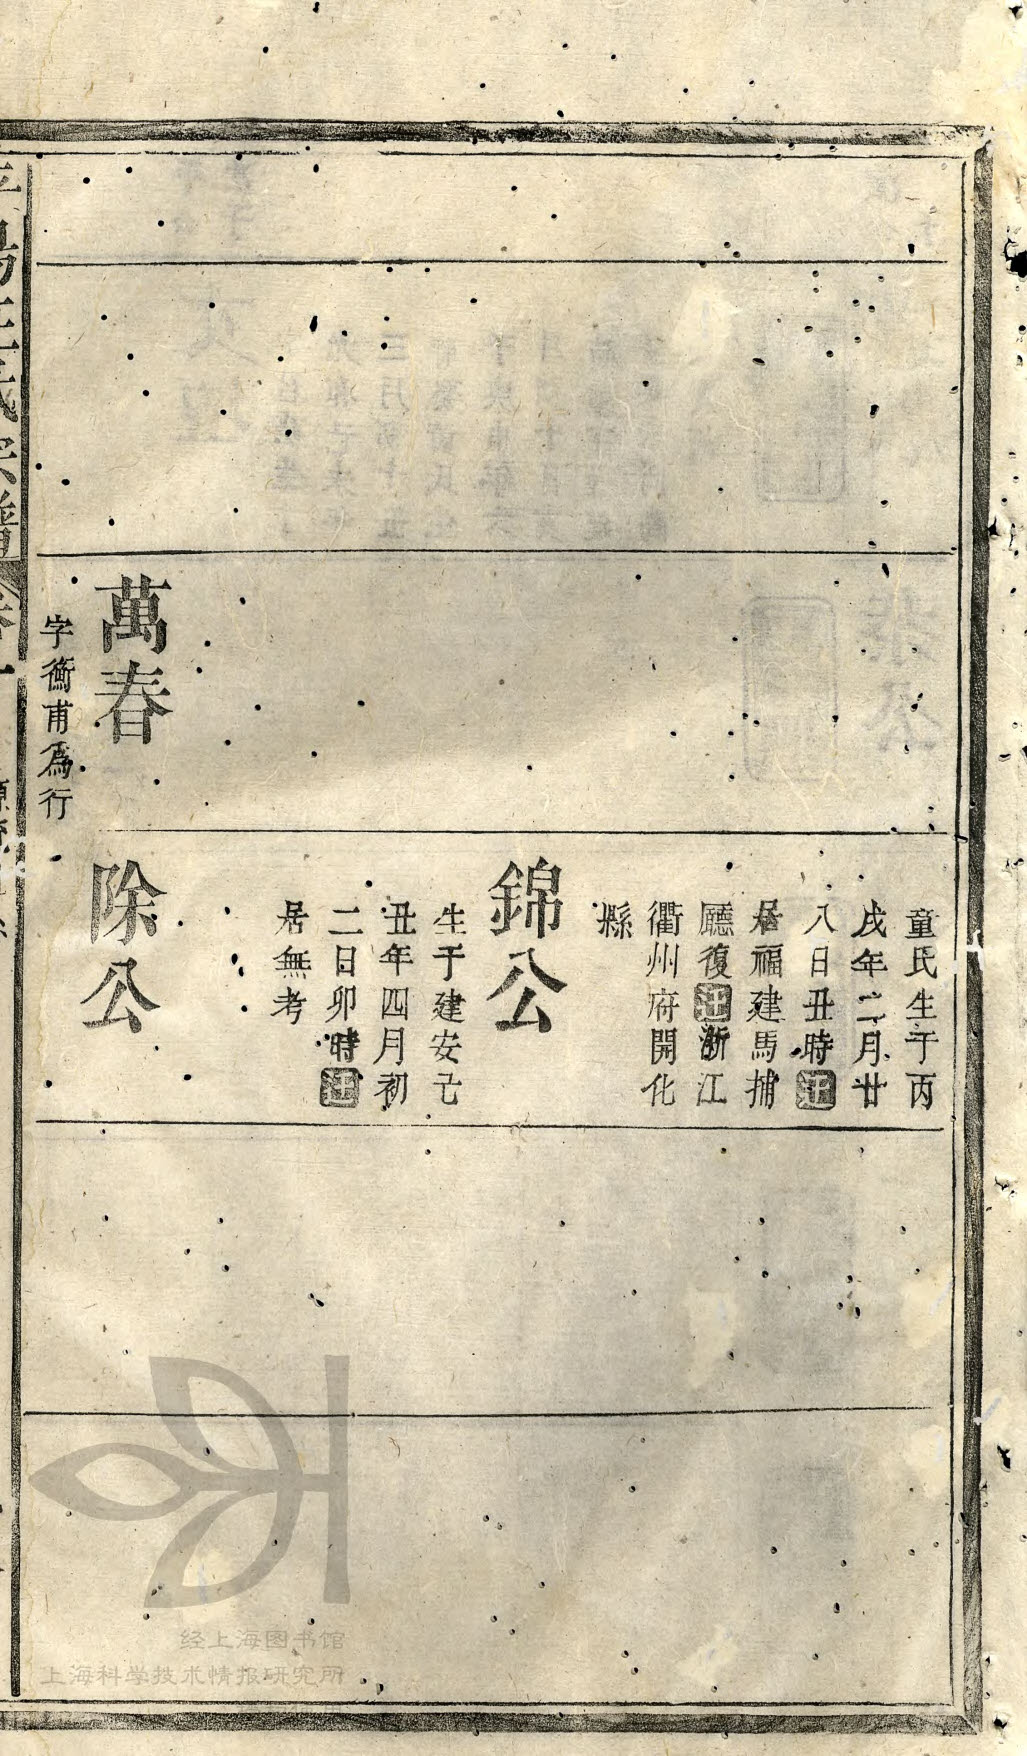 萬春
字衡甫爲行
童氏生于丙
戌年二月廿
八日丑時迁
居福建馬捕
廳復迁浙江
衢州府開化
縣
錦公
生于建安己
丑年四月初
二日卯時迁
居無考
除公
经上海图书馆
上海科学技术情报研究所